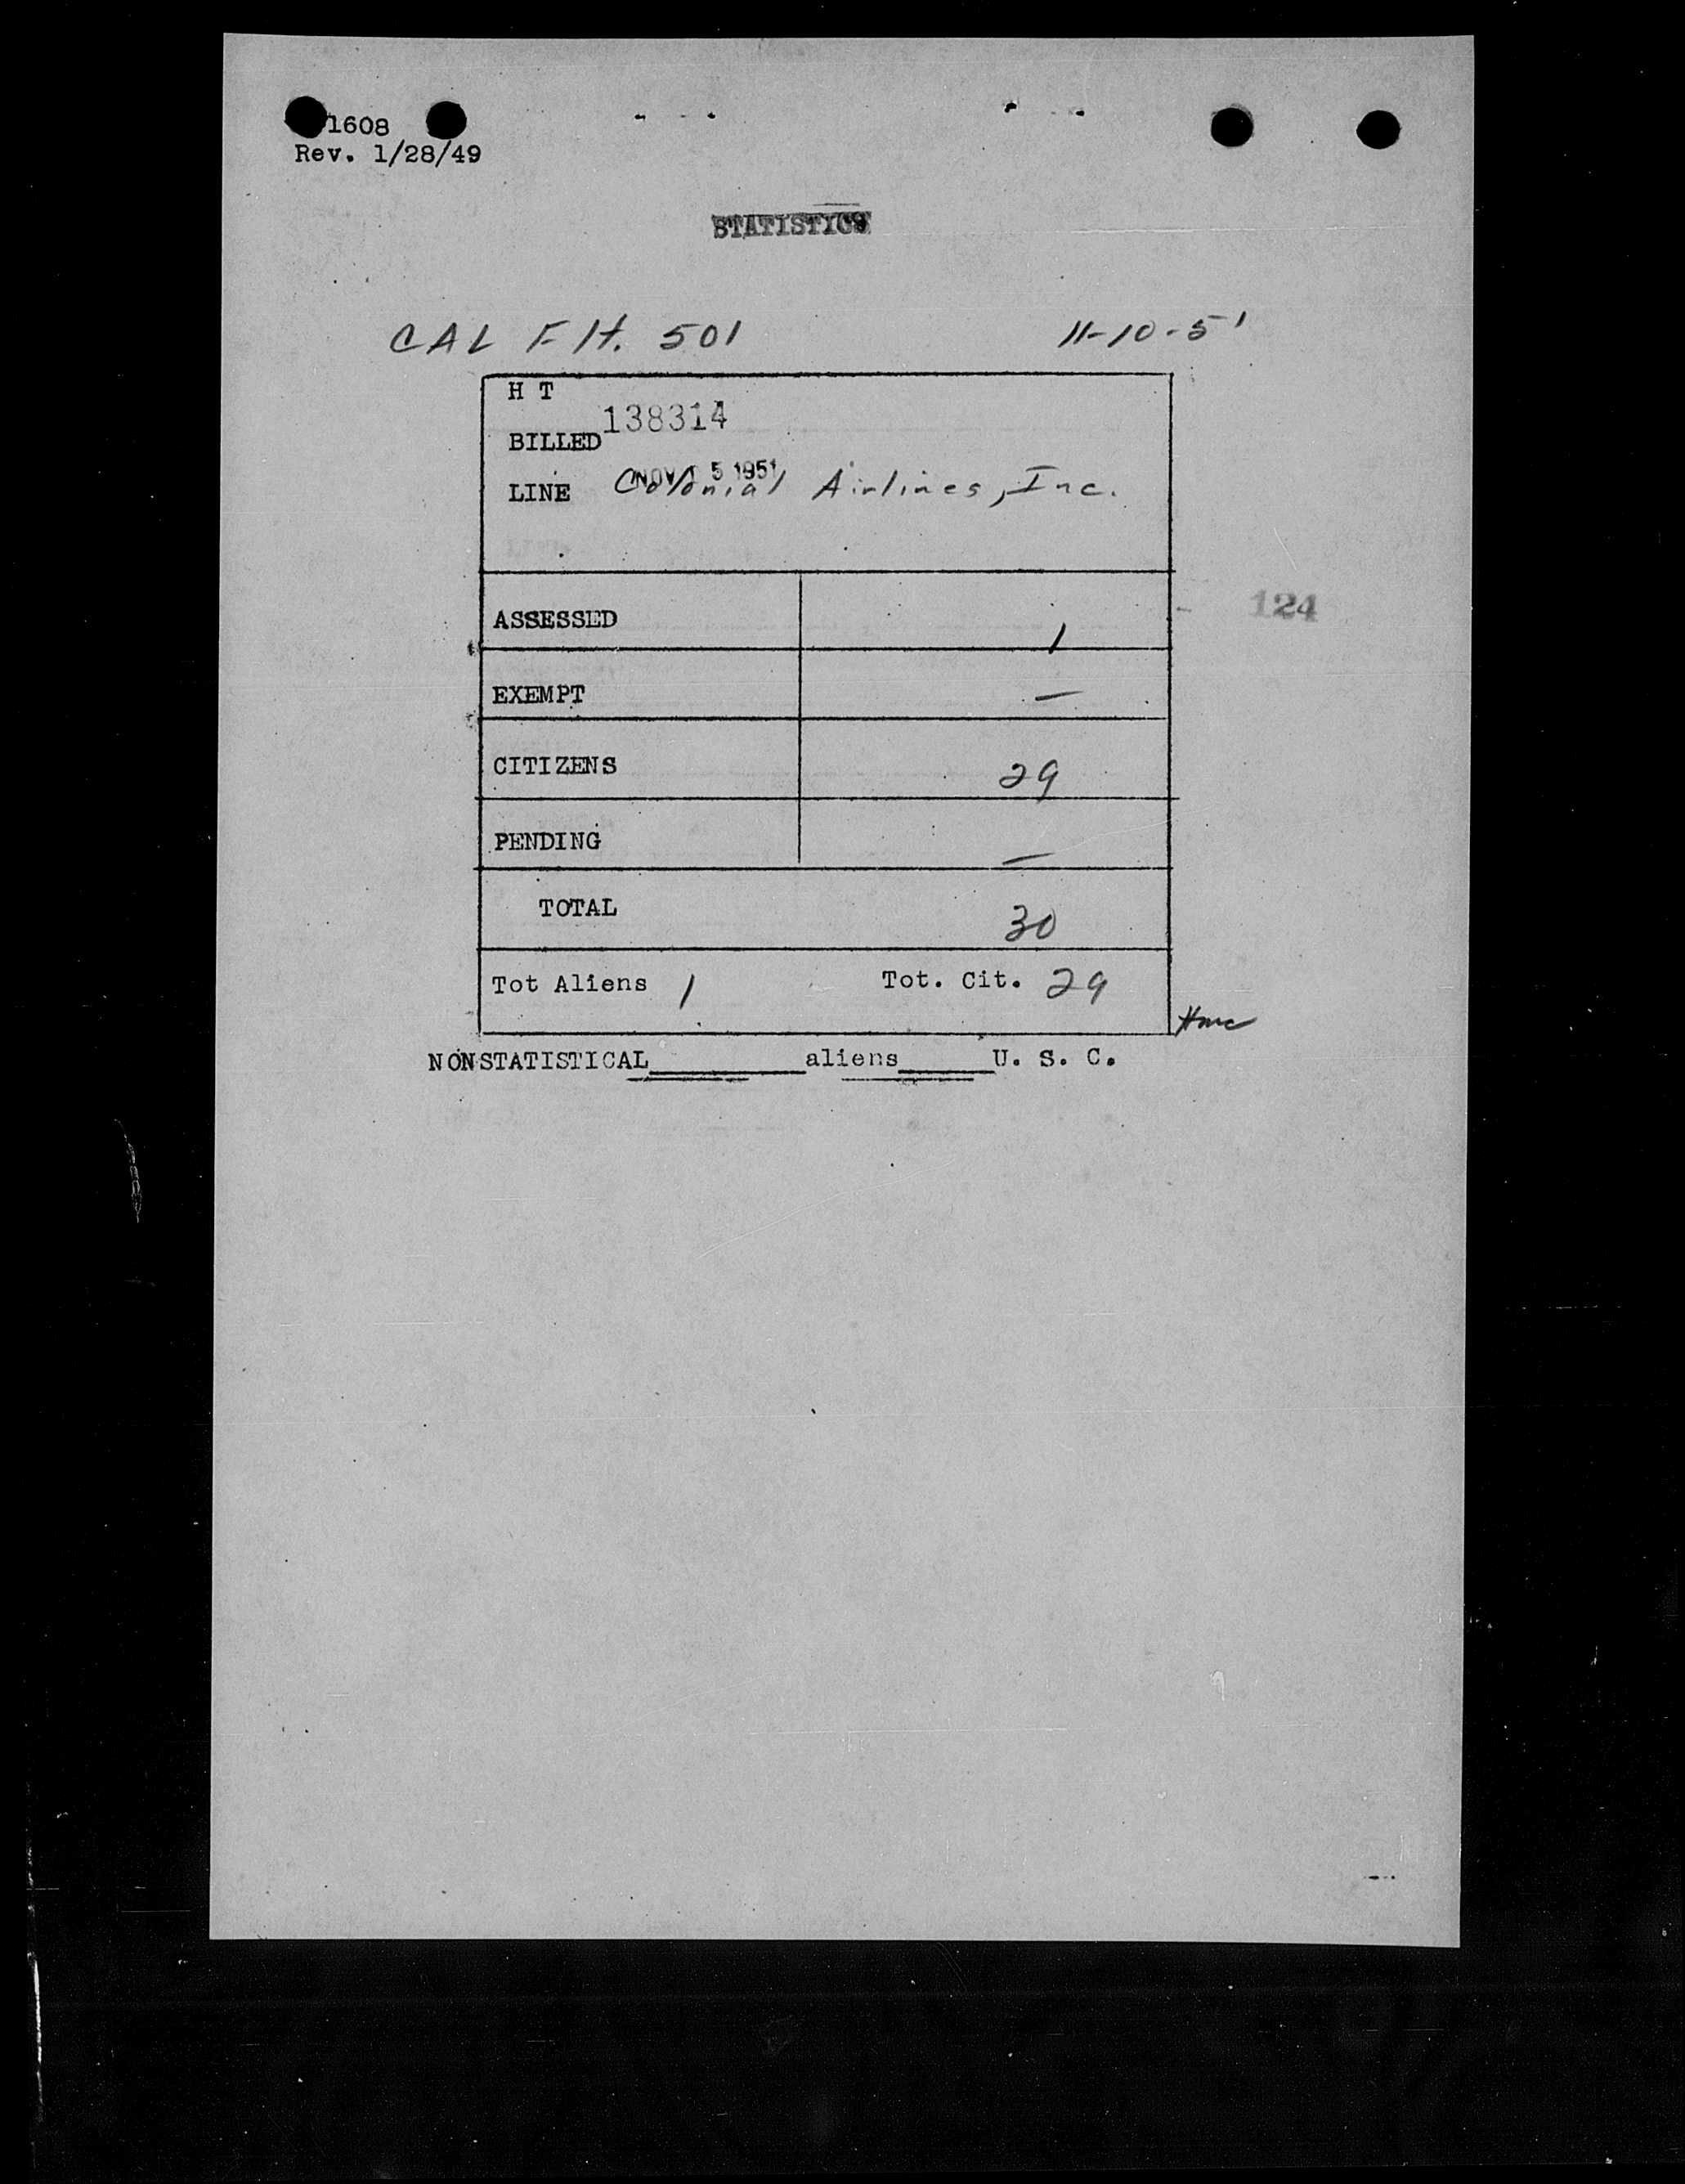 1608
Rev. 1/28/49
STATISTICS
CAL Flt. 501 11-10-51
H T
138314
BILLED
NOV 5 1951
LINE Colonial Airlines, Inc.
ASSESSED 1
124
EXEMPT —
CITIZENS 29
PENDING —
TOTAL 30
Tot Aliens 1 Tot. Cit. 29
NONSTATISTICAL________aliens_____U. S. C.